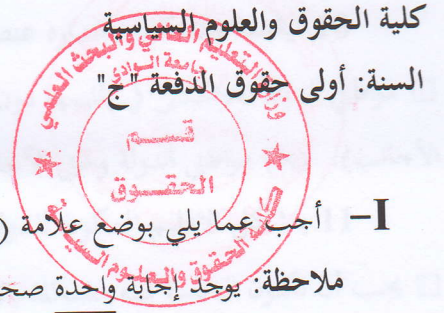 كلية الحقوق والعلوم السياسية
السنة: أولى حقوق الدفعة "ج"
وزارة التعليم العالي والبحث العلمي
جامعة الوادي
قسم
الحقوق
كلية الحقوق والعلوم السياسية
I- أجب عما يلي بوضع علامة (
ملاحظة: يوجد إجابة واحدة صح